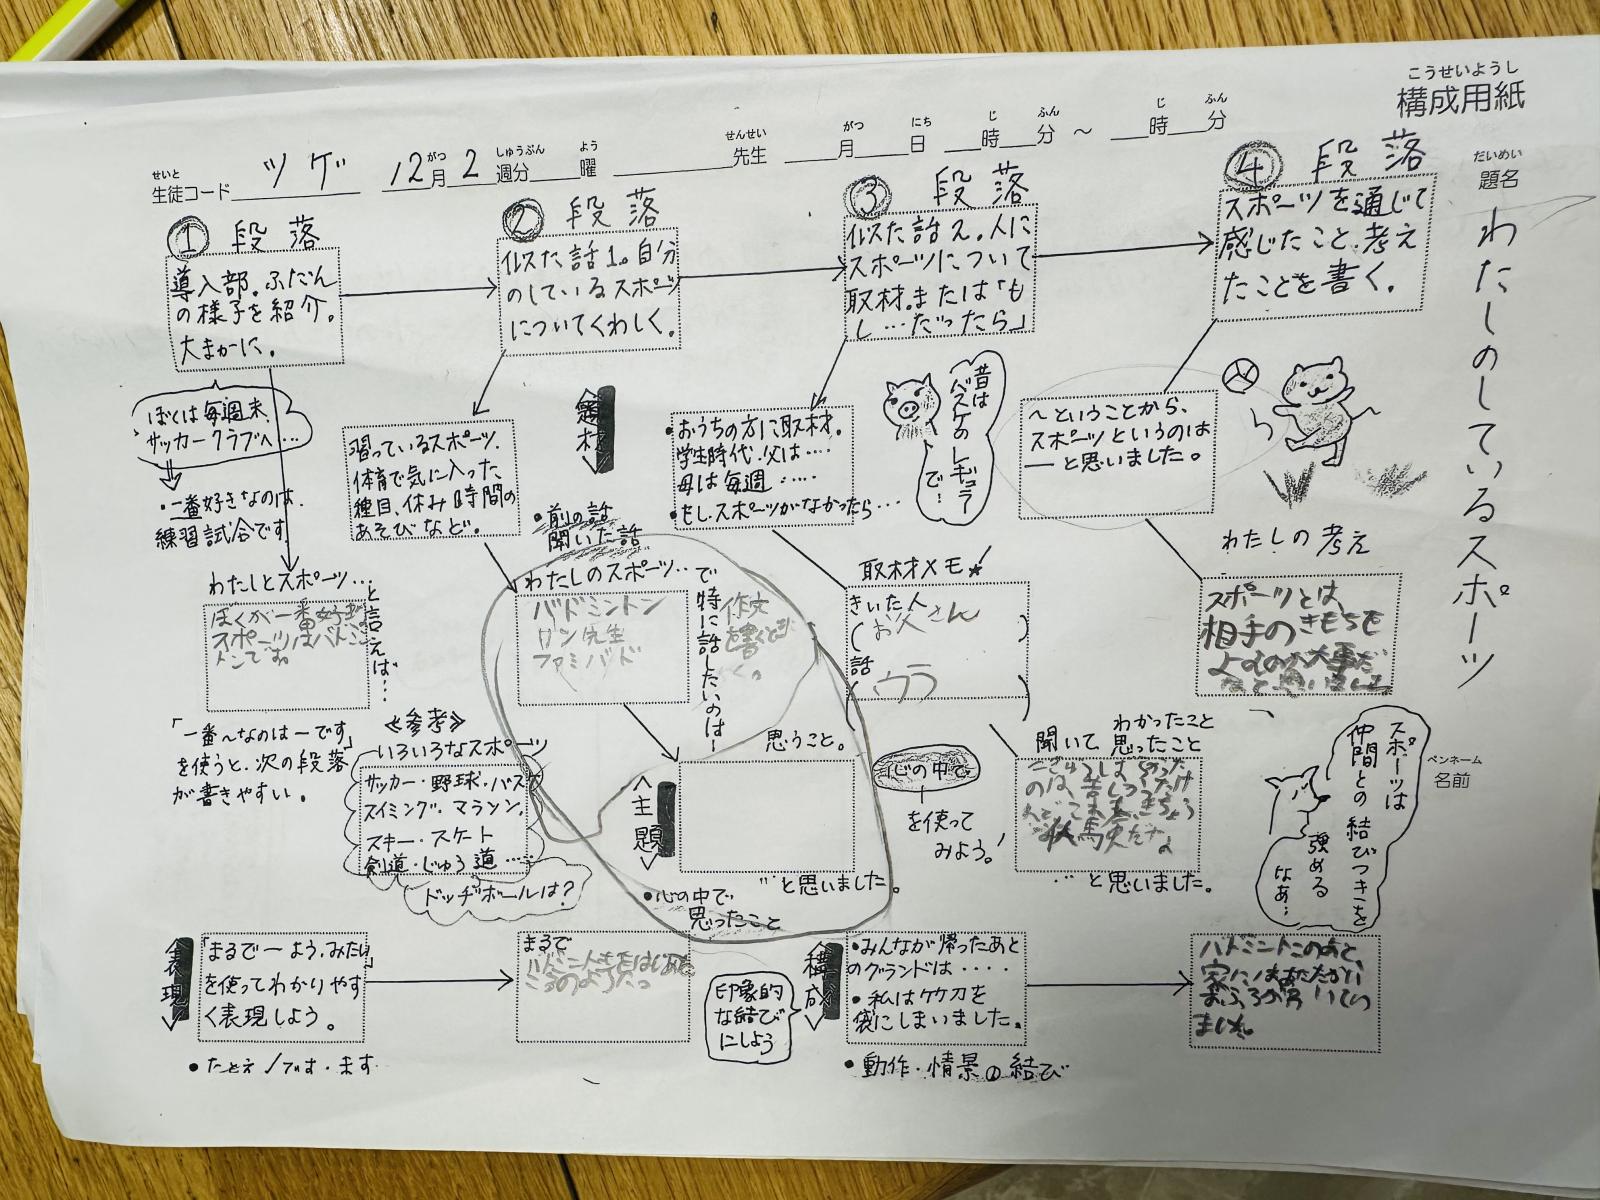 こうせいようし
構成用紙
せいと
生徒コード ツゲ 12月2週分 曜 先生 月 日 時 分 ～ 時 分
がつ しゅうぶん よう せんせい がつ にち じ ふん じ ふん
だいめい
題名
わたしのしているスポーツ
ペンネーム
名前
① 段落
導入部。ふだん
の様子を紹介。
大まかに。
ぼくは毎週末
サッカークラブへ…
・一番好きなのは、
練習試合です
わたしとスポーツ…
と言えば…
ぼくが一番好きな
スポーツはバドミン
トンです。
「一番～なのは―です」
を使うと、次の段落
が書きやすい。
② 段落
似た話1。自分
のしているスポーツ
についてくわしく。
習っているスポーツ.
体育で気に入った
種目、休み時間の
あそびなど。
題材
・前の話
聞いた話
わたしのスポーツ…
バドミントン
サン先生
ファミバド
で特に話したいのは―
作文
思うこと。
〈主題〉
…と思いました。
・心の中で
思ったこと
《参考》
いろいろなスポーツ
サッカー・野球・バスケ
スイミング・マラソン.
スキー・スケート
剣道・じゅう道……
ドッヂボールは?
③ 段落
似た話2。人に
スポーツについて
取材。または「も
し…だったら」
・おうちの方に取材。
学生時代、父は‥‥
母は毎週‥‥‥
・もしスポーツがなかったら…
昔は
バスケの
レギュラー
で…
取材メモ★
きいた人
(お父さん)
話
(ウラ)
心の中で
―を使って
みよう。!
聞いて
わかったこと
思ったこと
…と思いました。
④ 段落
スポーツを通じて
感じたこと、考え
たことを書く。
～ということから、
スポーツというのは
―と思いました。
わたしの考え
スポーツとは、
相手のきもちを
よむのが大事だ
なと思いました。
スポーツは
仲間との結びつきを
強める
なぁ…
表現
「まるで―よう.みたい」
を使ってわかりやす
く表現しよう。
・たとえ/です・ます
まるで
印象的
な結び
にしよう
構成
・みんなが帰ったあと
のグランドは‥‥
・私は竹刀を
袋にしまいました。
・動作・情景の結び
バドミントンのあと、
家にはあたたかい